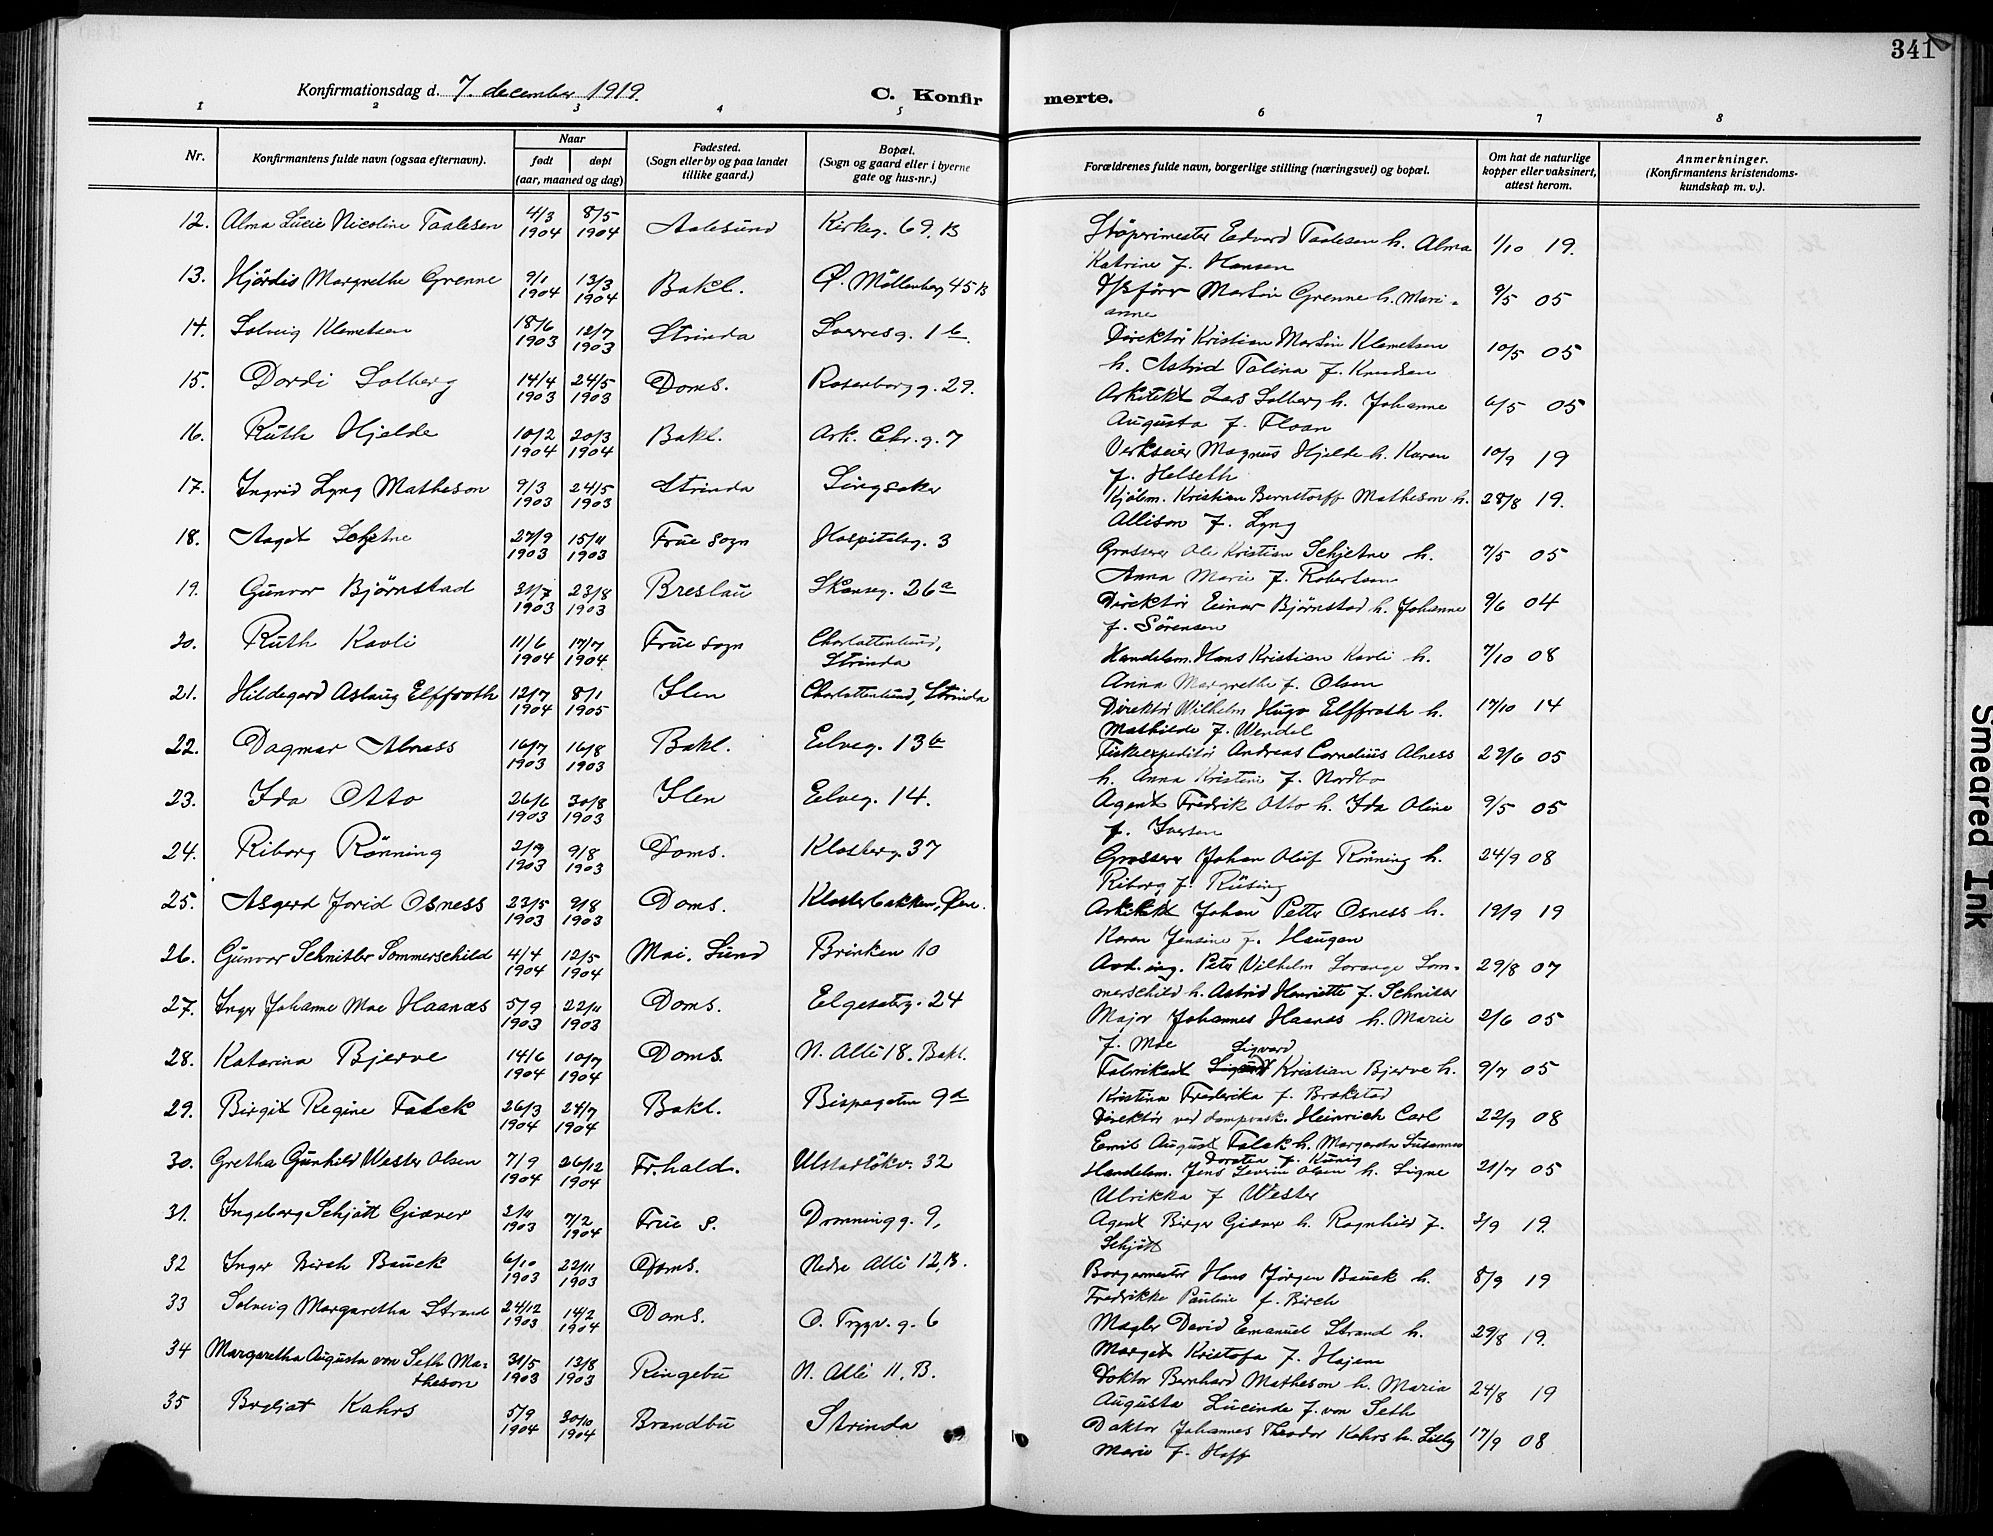 341
Konfirmationsdag d. 7. december 1919.
C. Konfirmerte.
1 2 3 4 5 6 7 8
Nr. | Konfirmantens fulde navn (ogsaa efternavn). | Naar født døpt (aar, maaned og dag) | Fødested. (Sogn eller by og paa landet tillike gaard.) | Bopæl. (Sogn og gaard eller i byerne gate og hus-nr.) | Forældrenes fulde navn, borgerlige stilling (næringsvei) og bopæl. | Om hat de naturlige kopper eller vaksinert, attest herom. | Anmerkninger. (Konfirmantens kristendomskundskap m. v.).
12. Alma Lucie Nicoline Taalesen 4/3 1904 8/5 1904 Aalesund Kirkeg. 69. B Støperimester Edvard Taalesen h. Alma Katrine f. Hansen 1/10 19.
13. Hjördis Margrethe Grenne 9/1 1904 13/3 1904 Bakl. Ø. Möllenberg 45 B Martin Grenne h. Marianne 9/5 05
14. Solveig Klemetsen 18/6 1903 12/7 1903 Strinda Sverresg. 1 b. Direktör Kristian Martin Klemetsen h. Astrid Talina f. Knudsen 10/5 05
15. Dordi Solberg 14/4 1903 24/5 1903 Doms. Rosenborg g. 29. Arkitekt Lars Solberg h. Johanne Augusta f. Floan 6/5 05
16. Ruth Hjelde 10/2 1904 20/3 1904 Bakl. Ark. Chr. g. 7 Verkseier Magnus Hjelde h. Karen f. Helseth 10/9 19
17. Ingrid Lyng Matheson 9/3 1903 24/5 1903 Strinda Singsaker Kjöbm. Kristian Bernstorff Matheson h. Allison f. Lyng 28/8 19.
18. Aagot Schjetne 27/9 1903 15/11 1903 Frue sogn Hospitalsg. 3 Grosserer Ole Kristian Schjetne h. Anna Marie f. Robertsen 7/5 05
19. Gunvor Bjørnstad 31/7 1903 23/8 1903 Breslau Skanseg. 26 a Direktör Einar Bjørnstad h. Johanne f. Sörensen 9/6 04
20. Ruth Kavli 11/6 1904 17/7 1904 Frue sogn Charlottenlund, Strinda Handelsm. Hans Kristian Kavli h. Anna Margrethe f. Olsen 7/10 08
21. Hildegard Aslaug Elffroth 12/7 1904 8/1 1905 Ilen Charlottenlund, Strinda Direktör Wilhelm Hugo Elffroth h. Mathilde f. Wendel 17/10 14
22. Dagmar Alness 16/7 1903 16/8 1903 Bakl. Eelveg. 13 b Fiskeexpeditör Andreas Cornelius Alness h. Anna Kristine f. Nordbo 27/6 05
23. Ida Otto 26/6 1903 30/8 1903 Ilen Eelveg. 14. Agent Fredrik Otto h. Ida Oline f. Iversen 9/5 05
24. Riborg Rönning 2/7 1903 9/8 1903 Doms. Klosterg. 37 Grosserer Johan Oluf Rönning h. Riborg f. Rüsing 24/9 08
25. Asgerd Jorid Osness 23/5 1903 9/8 1903 Doms. Klosterbakken, Öen. Arkitekt Johan Petter Osness h. Karen Jensine f. Haugan 19/9 19
26. Gunvor Schnitler Sommerschild 4/4 1904 12/5 1904 Mai. Sund Brinken 10 Avd. ing. Peter Vilhelm Lorange Sommerschild h. Astrid Henriette f. Schnitler 29/8 07
27. Inger Johanne Moe Haanæs 5/9 1903 22/11 1903 Doms. Elgeseterg. 24 Major Johannes Haanæs h. Marie f. Moe 2/6 05
28. Katarina Bjerve 14/6 1904 10/7 1904 Doms. N. Alle 18. Bakl. Fabrikant Sigvard Kristian Bjerve h. Kristina Frederika f. Brokstad 9/7 05
29. Birgit Regine Falck 26/3 1904 24/7 1904 Bakl. Bispegaten 9 d Direktör ved dampvask. Heinrich Carl Emil August Falck h. Margareta Susannes Dorotea f. König 22/9 08
30. Gretha Gunhild Wester Olsen 7/9 1904 26/12 1904 Fr.hald. Ulstadlökv. 32 Handelsm. Jens Severin Olsen h. Signe Ulrikka f. Wester 21/7 05
31. Ingeberg Schjött Giæver 3/11 1903 7/2 1904 Frue s. Dronning g. 9, Agent Birger Giæver h. Ragnhild f. Schjött 3/9 19.
32 Inger Birch Bauck 6/10 1903 22/11 1903 Doms. Nedre Alle 12, B. Borgermester Hans Jörgen Bauck h. Fredrikke Pauline f. Birch 8/9 19
33 Solveig Margaretha Strand 24/12 1903 14/2 1904 Doms. O. Trygv. g. 6 Mægler David Emanuel Strand h. Marget Kristofa f. Hajem 29/8 19.
34 Margaretha Augusta von Seth Matheson 31/5 1903 13/8 1903 Ringebu N. Alle 11. B. Doktor Bernhard Matheson h. Maria Augusta Lucinde f. von Seth 24/8 19
35 Brgliot Kahrs 5/9 1904 30/10 1904 Brandbu Strinda Doktor Johannes Theodor Kahrs h. Lilly Marie f. Hoff 17/9 08
Smeared Ink